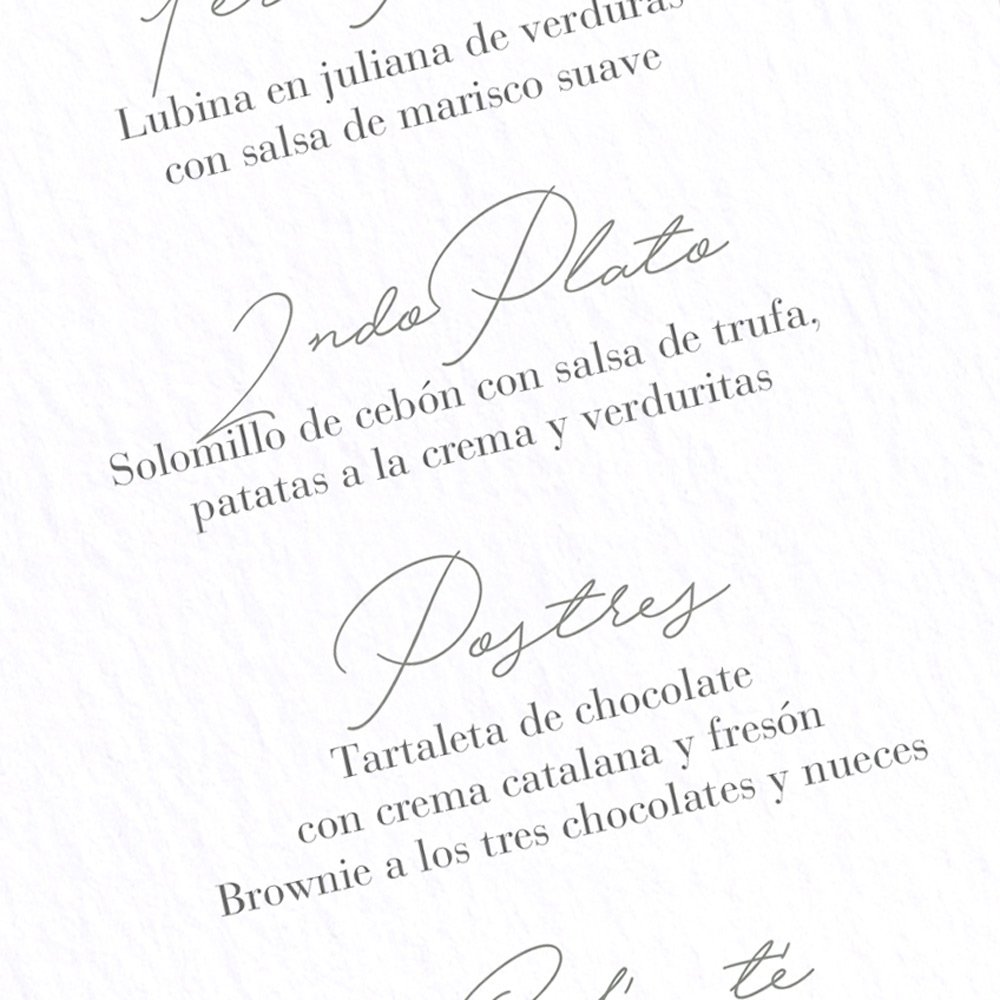 Lubina en juliana de verduras
con salsa de marisco suave
2ndo Plato
Solomillo de cebón con salsa de trufa,
patatas a la crema y verduritas
Postres
Tartaleta de chocolate
con crema catalana y fresón
Brownie a los tres chocolates y nueces